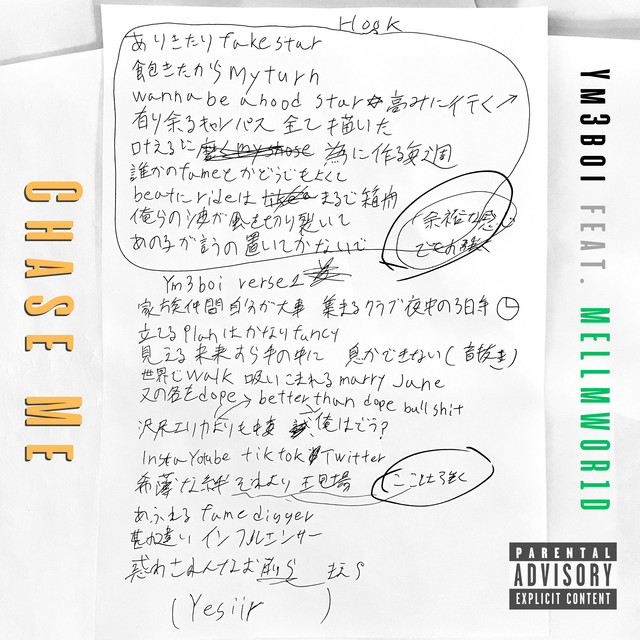 Hook
ありきたり fake star
飽きたから my turn
wanna be a hood star☆高みに行く↗
有り余るキャンパス 全て描いた
叶える に 為に作る毎週
誰かの fame とかどうでもよくて
beatに rideは まるで箱舟
俺らの波が風を切り裂いて
あの子が言うの置いてかないで
余裕な感じ
でもお強く
Ym3boi verse1
家族仲間自分が大事 集まるクラブ夜中の3時半
立てる planはかなり fancy
見える未来すら手の中に 息ができない(音抜き)
世界で walk 吸いこまれる marry June
又の名を dope better than dope bull shit
沢尻エリカ 俺はどう?
Insta Yotube tiktok Twitter
希薄な絆 それより 現場
ここは強く
あふれる fame digger
甚だ違い インフルエンサー
惑わされんなお前ら
(Yesiir )
CHASE ME
YM3BOI FEAT. MELLMWOR1D
PARENTAL
ADVISORY
EXPLICIT CONTENT